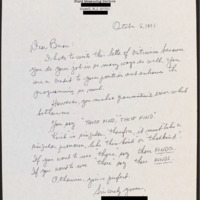 October 6, 1981
Dear Brian:
I hate to write this letter of criticism because
you do your job in so many ways so well. You
are a credit to your position and enhance the
programming so much.
However, you make a grammatical error which
bothers me.
You say "THESE KIND, THOSE KIND."
Kind is singular, therefore, it must take a
singular pronoun, like "this kind or that kind."
If you want to use these, say these KINDS.
If you want to use those say those KINDS.
Otherwise, you're perfect.
Sincerely yours,